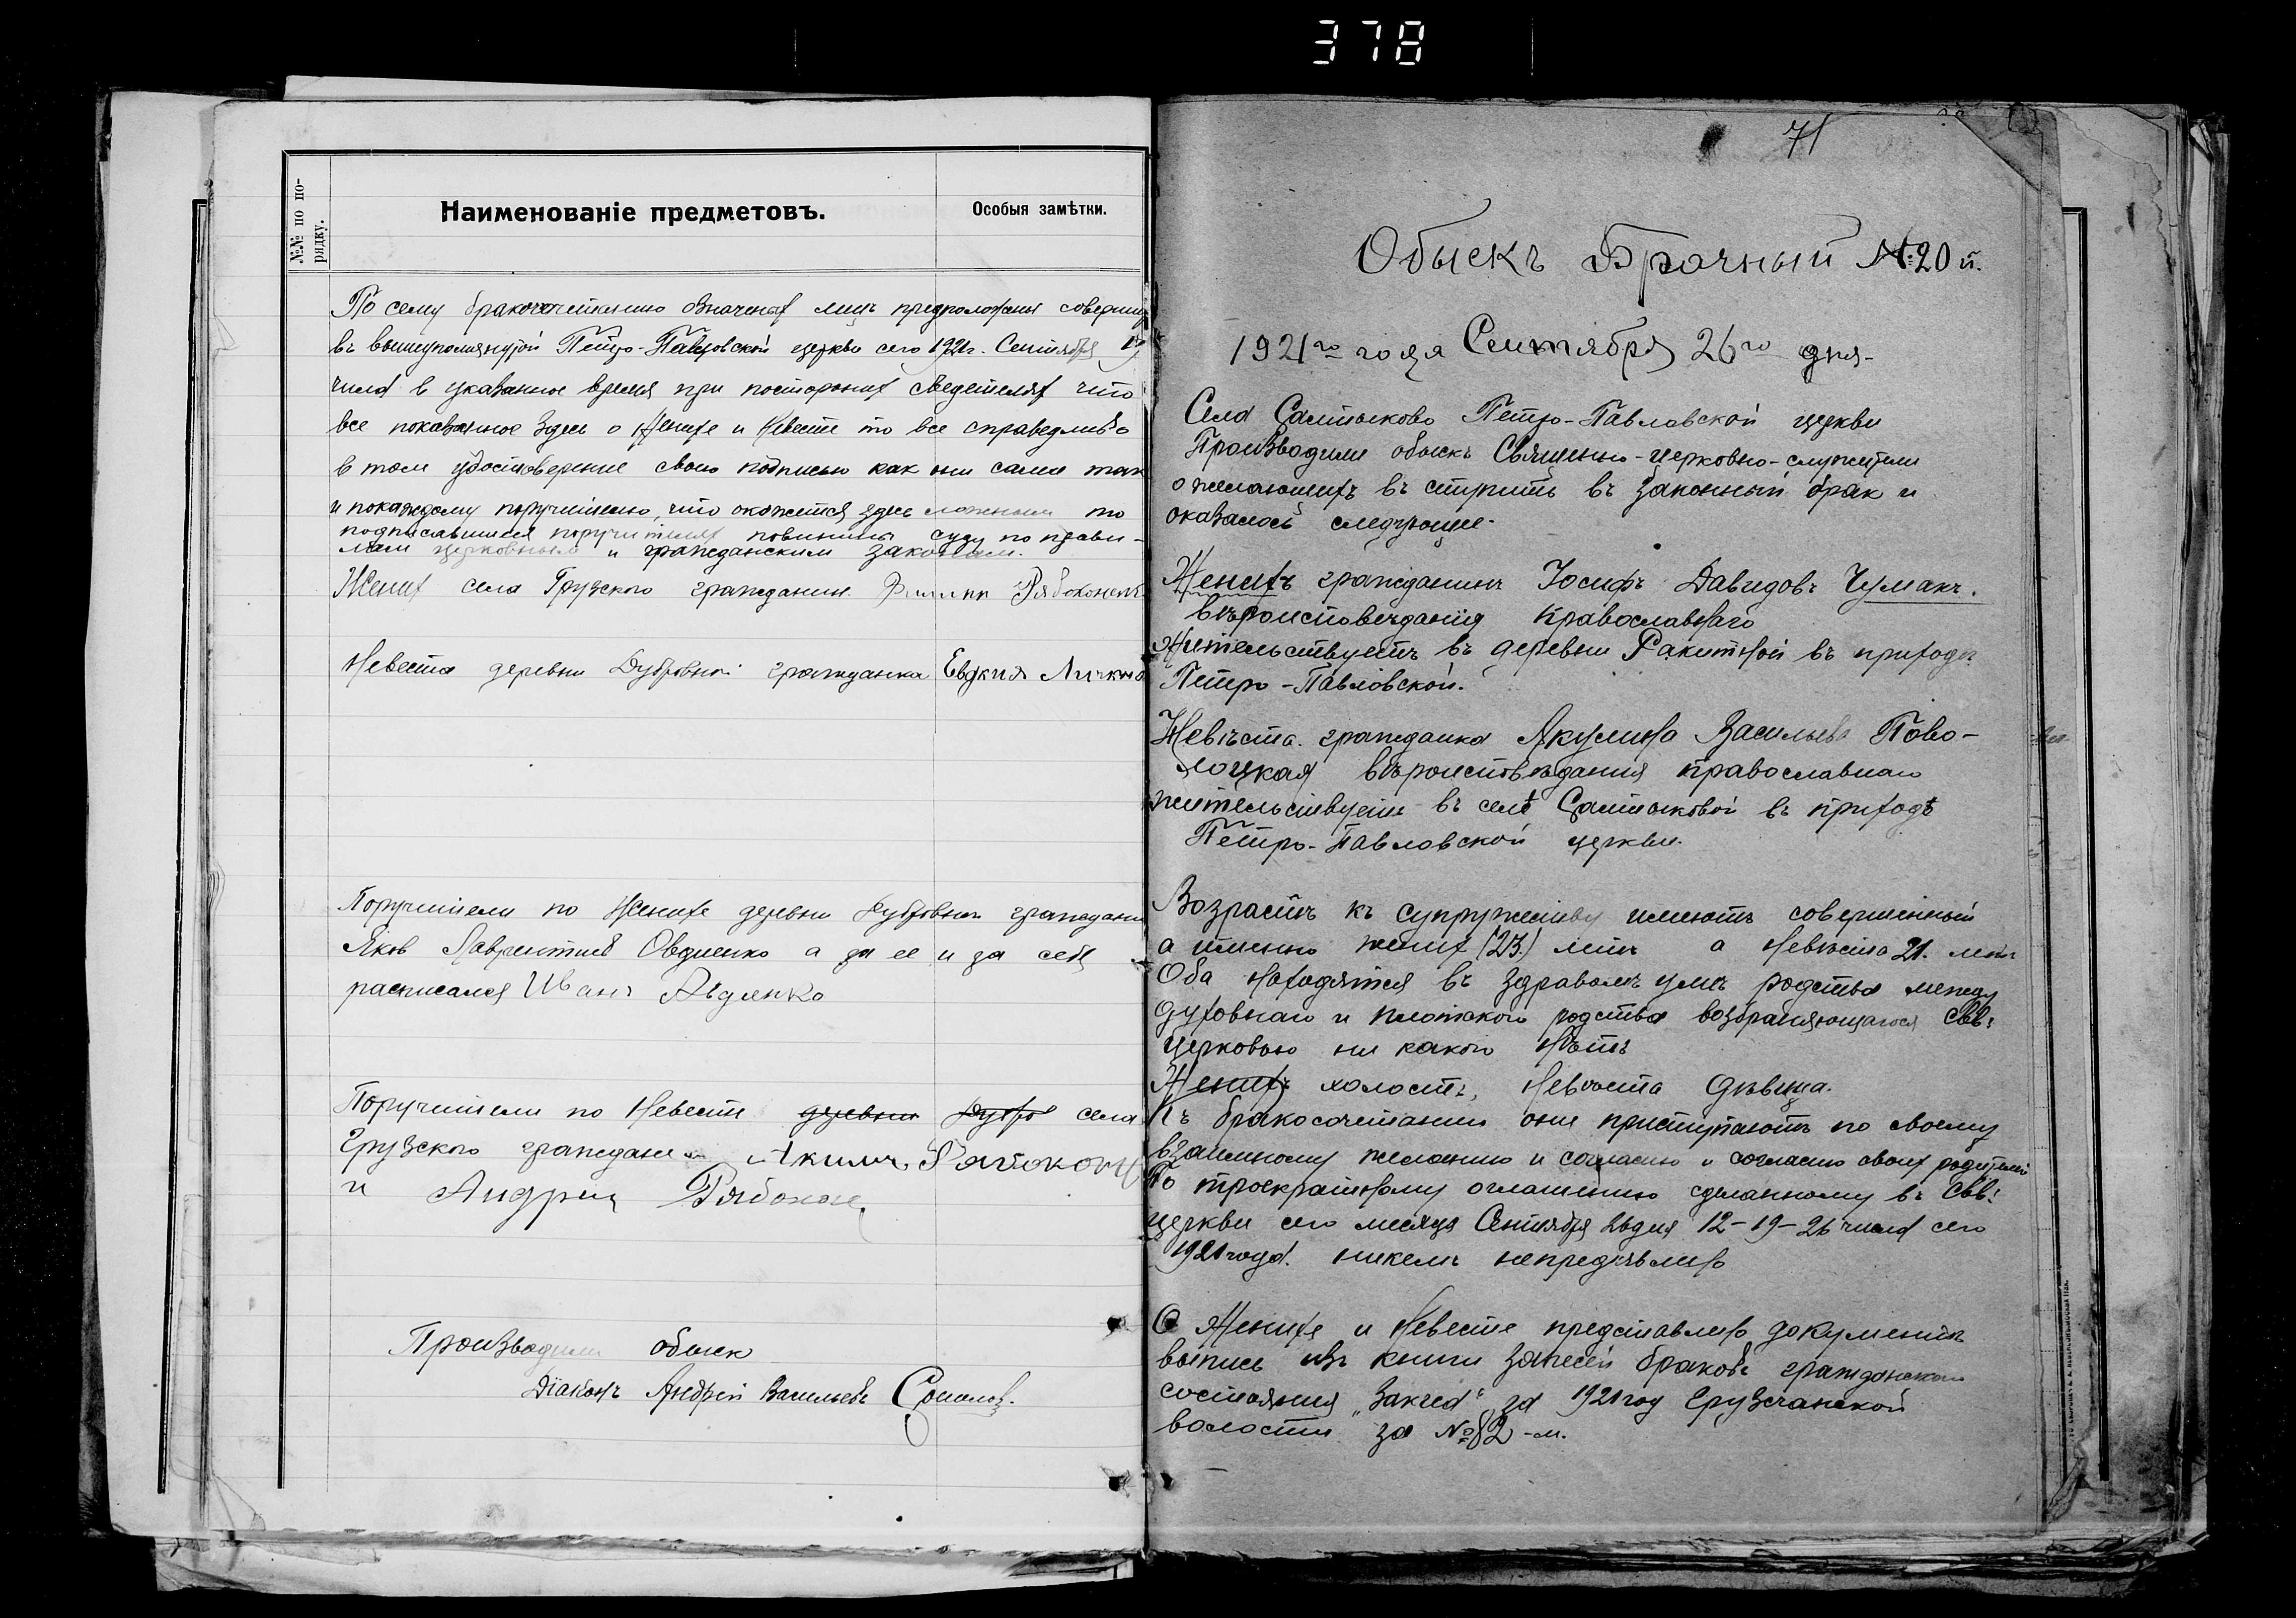 378
№№ по по-
рядку.
Наименованіе предметовъ.
Особыя замѣтки.
По сему бракосочетанию означеных лицъ предположены соверши
въ вышеупомянутой Петро-Павловской церкви сего 1921г. Сентября
числа в указанное время при посторонних сведетелях что
все показанное здесь о Женихе и Невесте то все справедливо
в том удостоверение свою подписью как они сами так
и по каждому поручителю, что окажется здесь ложным то
подписавшиеся поручители повинны суду по прави-
лам церковным и гражданским законам.
Жених села Грузского гражданин Филипп Рябоконев
Невеста деревни Дубровки гражданка Евдкия Личкно
Поручители по Женихе деревни Дубровки граждани
Яков Лаврентиев Овдиенко а за ее и за себя
расписался Иван Авдиенко
Поручители по Невесте деревни Дубро села
Грузского граждани Акимъ Рябоконе
и Андрей Рябокон
Производили обыск
Діаконъ Андрей Васильевъ Соколов.
71
Обыскъ Брачный № 20 й.
1921го года Сентября 26го дня-
Села Салтыково Петро-Павловской церкви
Производили обыскъ Священно-церковно-служители
о желающихъ въ ступить въ законный брак и
оказалось следующее-
Женихъ гражданинъ Іосифъ Давидовъ Чумакъ.
вѣроисповѣданія православнаго
Жительствуетъ въ деревни Ракитной въ приходѣ
Петро-Павловской.
Невѣста. гражданка Якулина Васильева Пово-
лоцкая вѣроисповѣдания православнаго
жительствуетъ въ селѣ Салтыковой въ приходѣ
Петро-Павловской церкви.
Возрастъ къ супружеству имеютъ совершенный
а именно жених (23.) летъ а Невѣста 21. летъ
Оба находятся въ здравомъ умѣ родства между
духовнаго и плотского родства возбраняющагося Свв:
церковью ни какого нѣтъ
Женихъ холостъ, Невѣста дѣвица.
Къ бракосочетанию они приступаютъ по своему
взаимному желанию и согласию и согласию своих родителей
По троекратному оглашению сделанному въ Свв:
церкви сего месяца Сентября 26 дня 12-19-26 числа сего
1921 года. никемъ непредъявлено
О Женихе и Невесте представлено документъ
выпись изъ книги записей браковъ гражданского
состояния „Закса" за 1921 год Грузчанской
волости за №82-м.